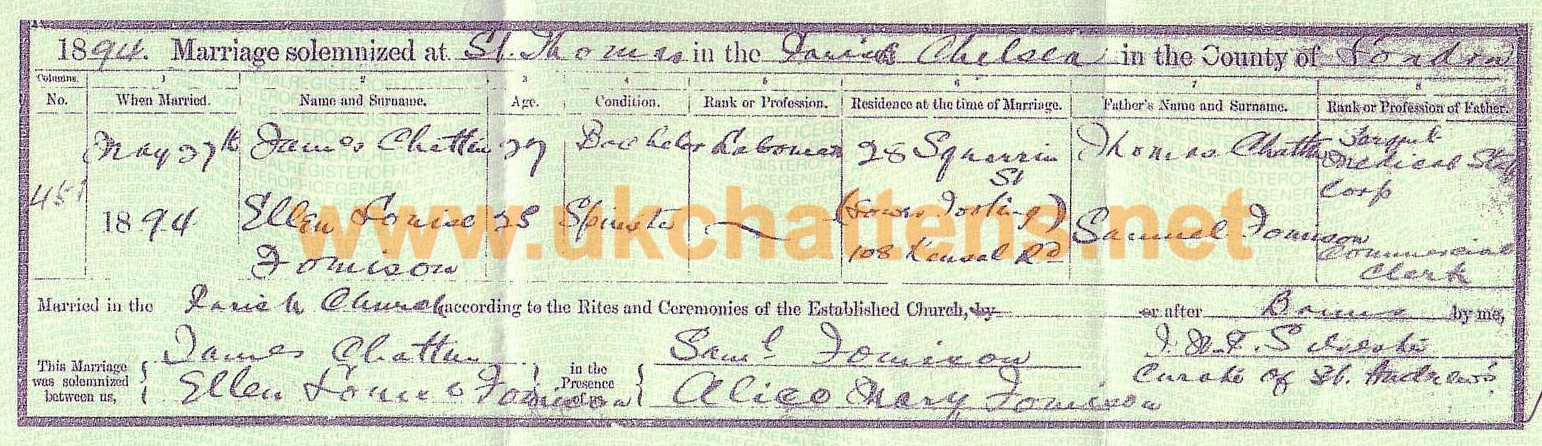 1894. Marriage solemnized at St. Thomas in the Parish Chelsea in the County of London
Columns. 1 2 3 4 5 6 7 8
No. When Married. Name and Surname. Age. Condition. Rank or Profession. Residence at the time of Marriage. Father's Name and Surname. Rank or Profession of Father.
451 May 27th 1894 James Chatten 27 Bachelor Labourer 28 St Thomas Chatten Medical Staff Corp
Ellen Louise Tomison 25 Spinster (Lower Tooting) 108 Kensal Rd Samuel Tomison Commercial Clerk
www.ukchattens.net
Married in the Parish Church according to the Rites and Ceremonies of the Established Church, by or after Banns by me,
This Marriage was solemnized between us, James Chatten Ellen Louise Tomison in the Presence of us, Saml Tomison Alice Mary Tomison
Curate of St. Andrew's